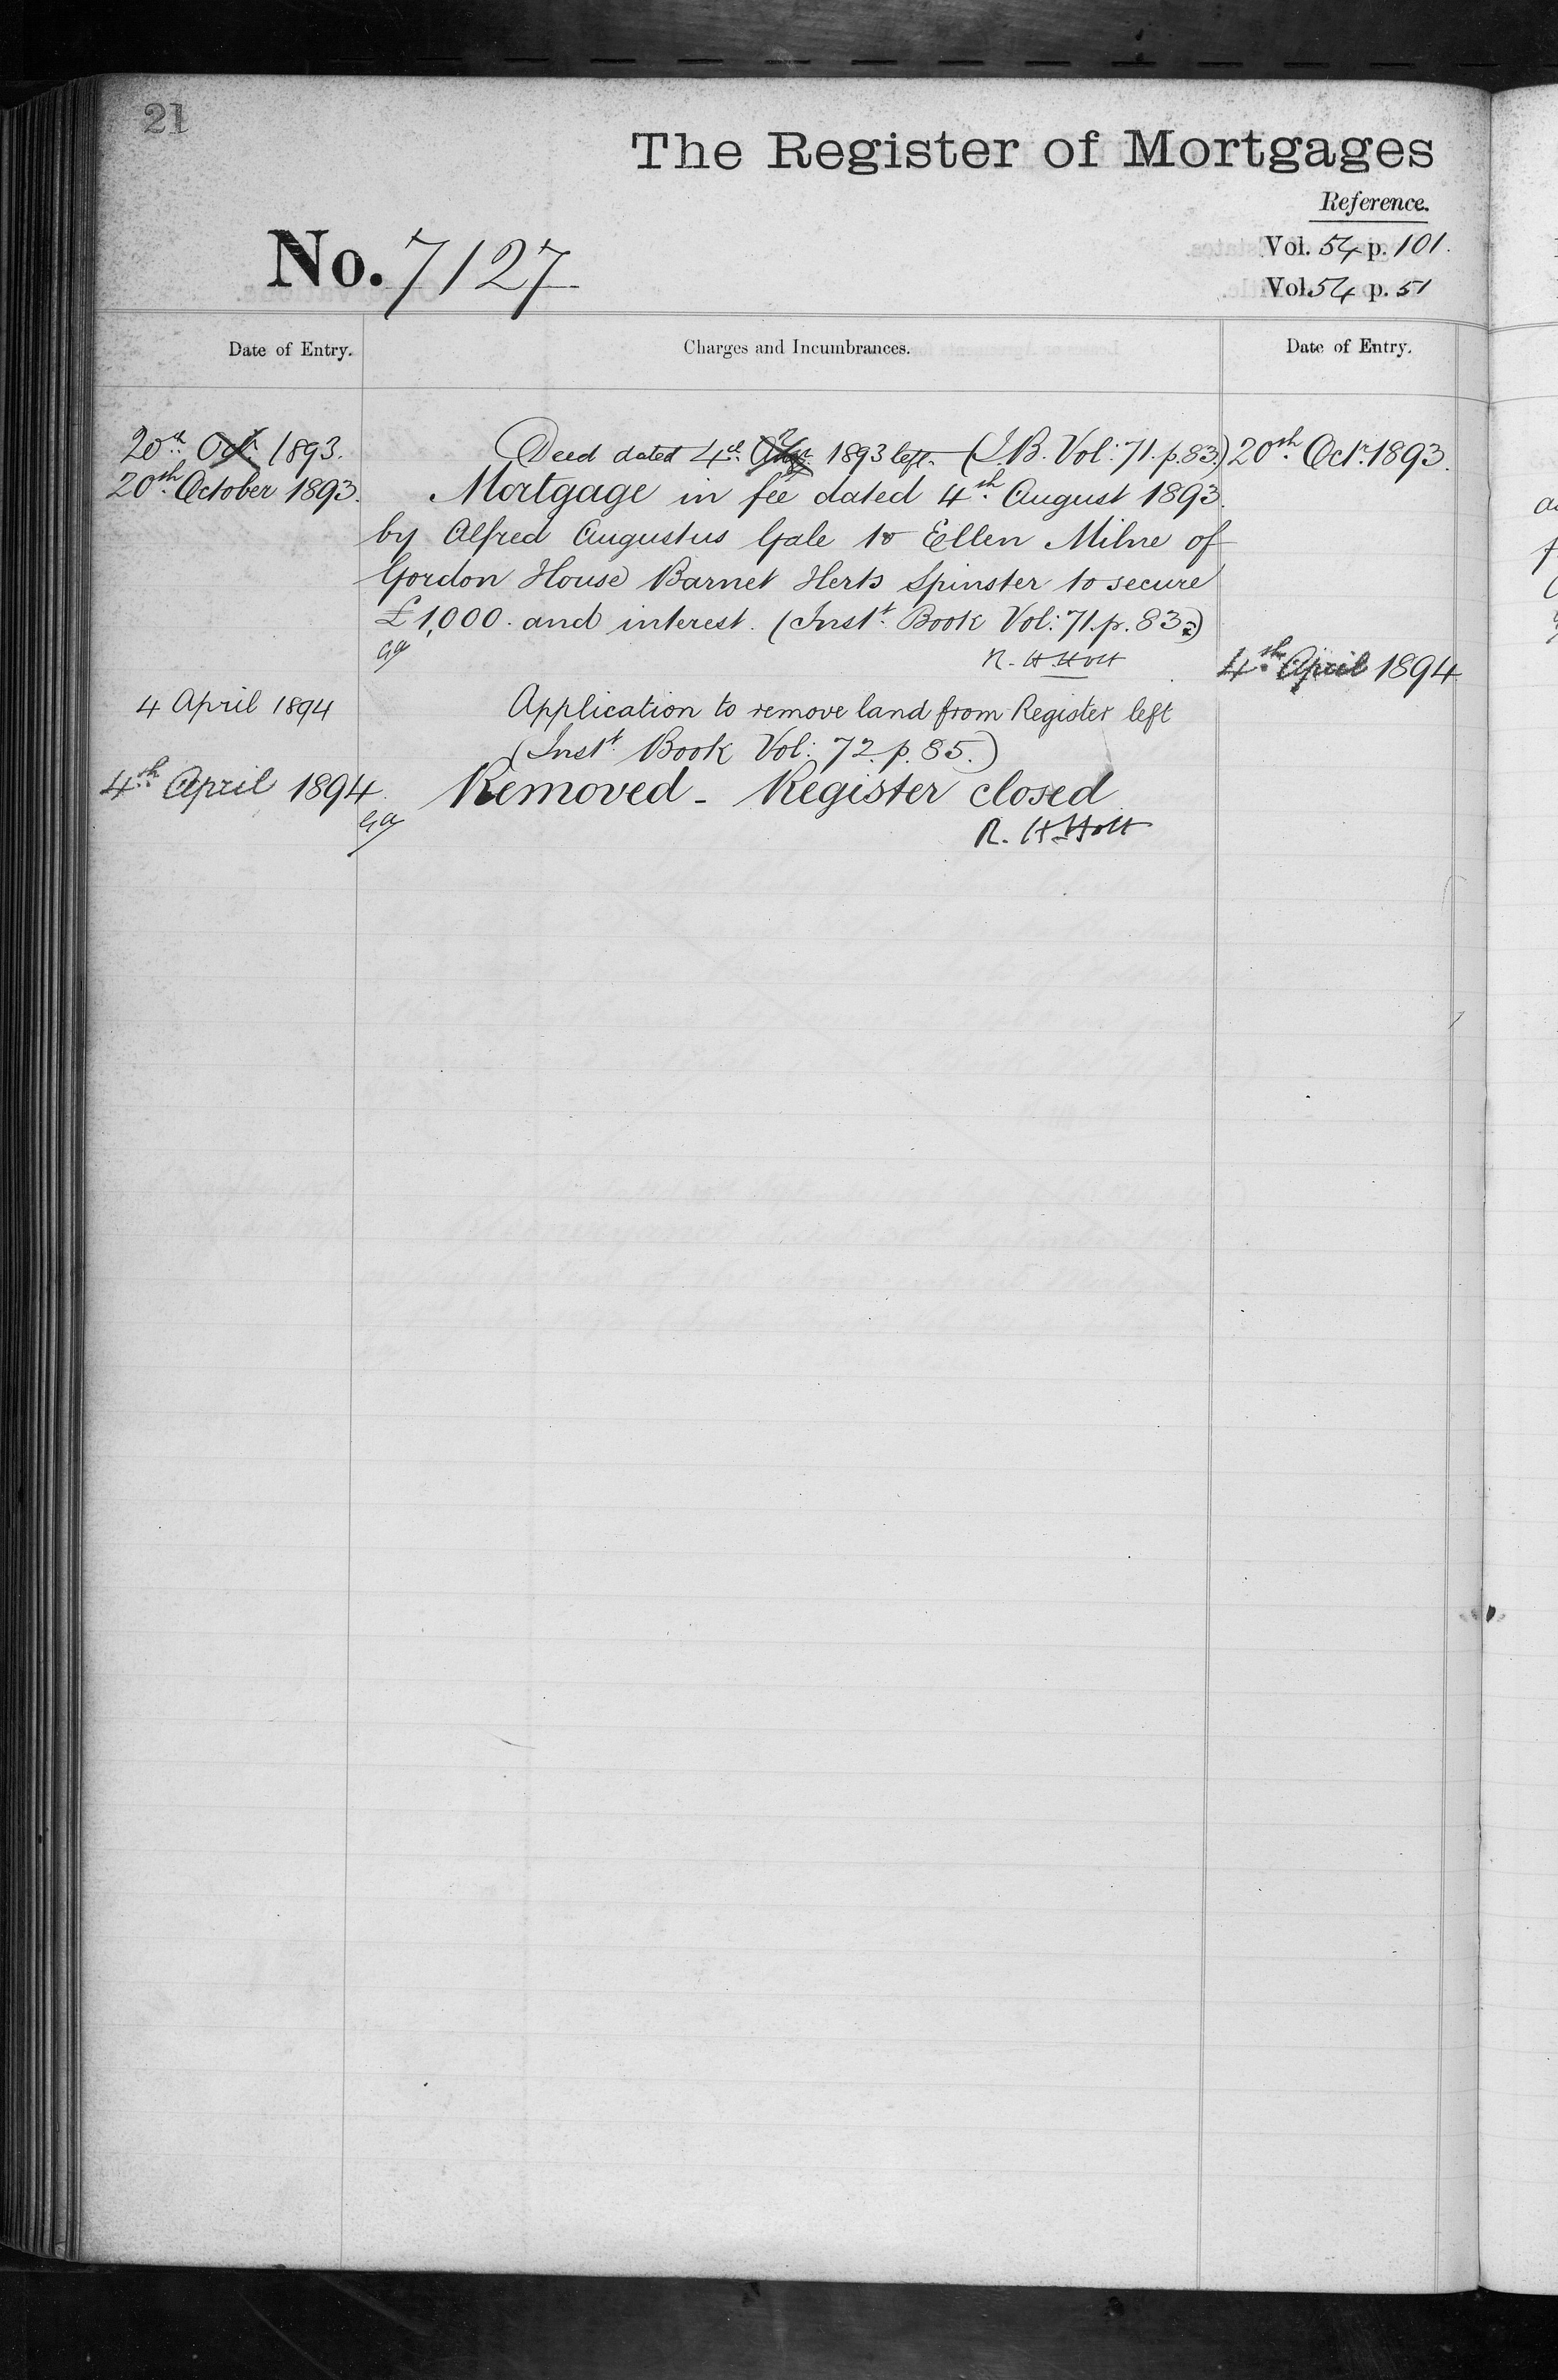 21
The Register of Mortgages
Reference.
No. 7127
Vol. 54 p. 101.
Vol. 54 p. 51
Date of Entry.
Charges and Incumbrances.
Date of Entry.
20th Oct. 1893.
Deed dated 4th Augt. 1893 left. (I.B. Vol: 71. p. 83.)
20th Octr. 1893.
20th October 1893.
Mortgage in fee dated 4th August 1893.
by Alfred Augustus Gale to Ellen Milne of
Gordon House Barnet Herts Spinster to secure
£1,000. and interest. (Instt. Book Vol: 71. p. 83.)
R. H Holt
4th April 1894
4 April 1894
Application to remove land from Register left
(Instt. Book Vol: 72. p. 85.)
4th April 1894.
Removed - Register closed
R. H Holt